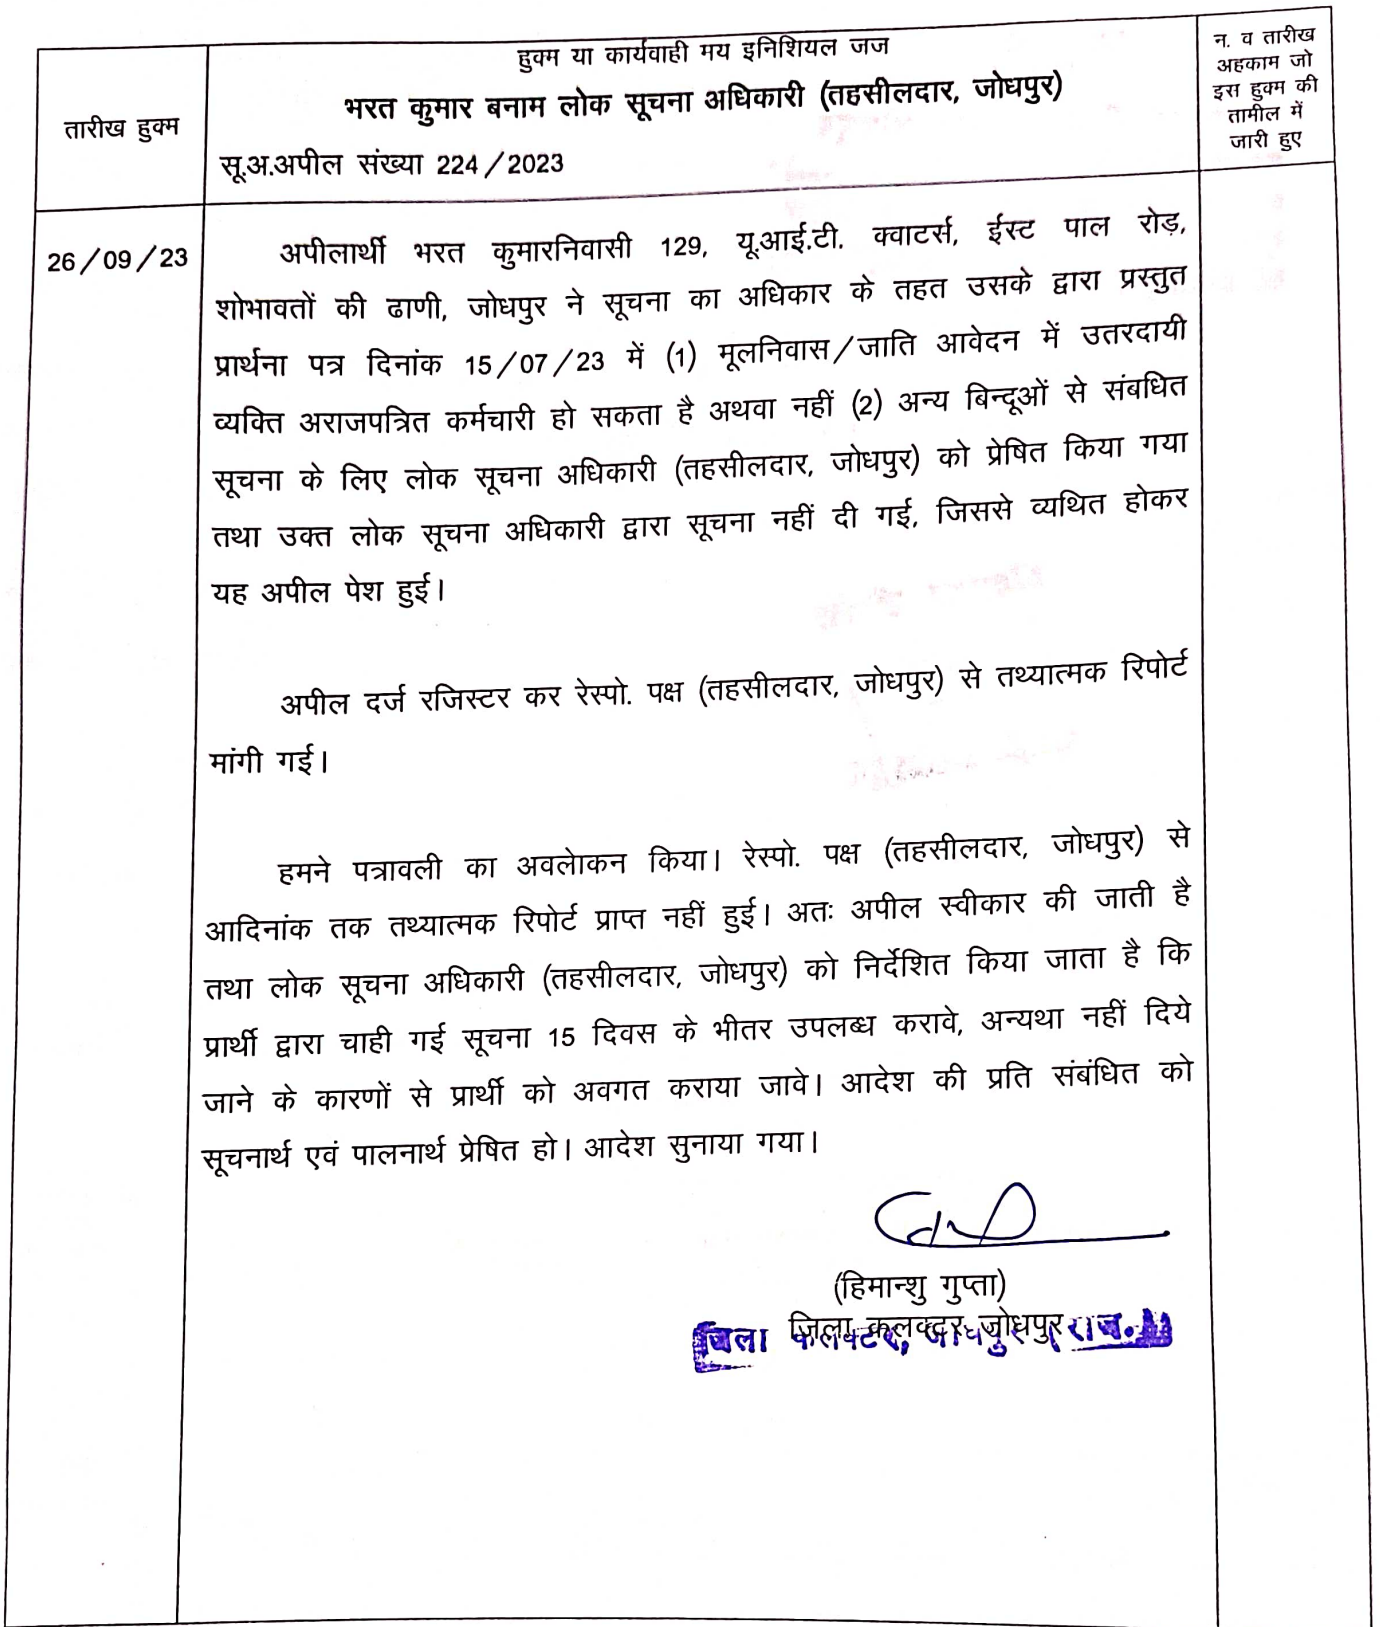 तारीख हुक्म
हुक्म या कार्यवाही मय इनिशियल जज
भरत कुमार बनाम लोक सूचना अधिकारी (तहसीलदार, जोधपुर)
सू.अ.अपील संख्या 224/2023
न. व तारीख
अहकाम जो
इस हुक्म की
तामील में
जारी हुए
26/09/23
अपीलार्थी भरत कुमारनिवासी 129, यू.आई.टी. क्वाटर्स, ईस्ट पाल रोड़,
शोभावतों की ढाणी, जोधपुर ने सूचना का अधिकार के तहत उसके द्वारा प्रस्तुत
प्रार्थना पत्र दिनांक 15/07/23 में (1) मूलनिवास/जाति आवेदन में उतरदायी
व्यक्ति अराजपत्रित कर्मचारी हो सकता है अथवा नहीं (2) अन्य बिन्दूओं से संबधित
सूचना के लिए लोक सूचना अधिकारी (तहसीलदार, जोधपुर) को प्रेषित किया गया
तथा उक्त लोक सूचना अधिकारी द्वारा सूचना नहीं दी गई, जिससे व्यथित होकर
यह अपील पेश हुई।
अपील दर्ज रजिस्टर कर रेस्पो. पक्ष (तहसीलदार, जोधपुर) से तथ्यात्मक रिपोर्ट
मांगी गई।
हमने पत्रावली का अवलोकन किया। रेस्पो. पक्ष (तहसीलदार, जोधपुर) से
आदिनांक तक तथ्यात्मक रिपोर्ट प्राप्त नहीं हुई। अतः अपील स्वीकार की जाती है
तथा लोक सूचना अधिकारी (तहसीलदार, जोधपुर) को निर्देशित किया जाता है कि
प्रार्थी द्वारा चाही गई सूचना 15 दिवस के भीतर उपलब्ध करावे, अन्यथा नहीं दिये
जाने के कारणों से प्रार्थी को अवगत कराया जावे। आदेश की प्रति संबंधित को
सूचनार्थ एवं पालनार्थ प्रेषित हो। आदेश सुनाया गया।
(हिमान्शु गुप्ता)
जिला कलक्टर जोधपुर
जिला कलक्टर, जोधपुर (राज.)